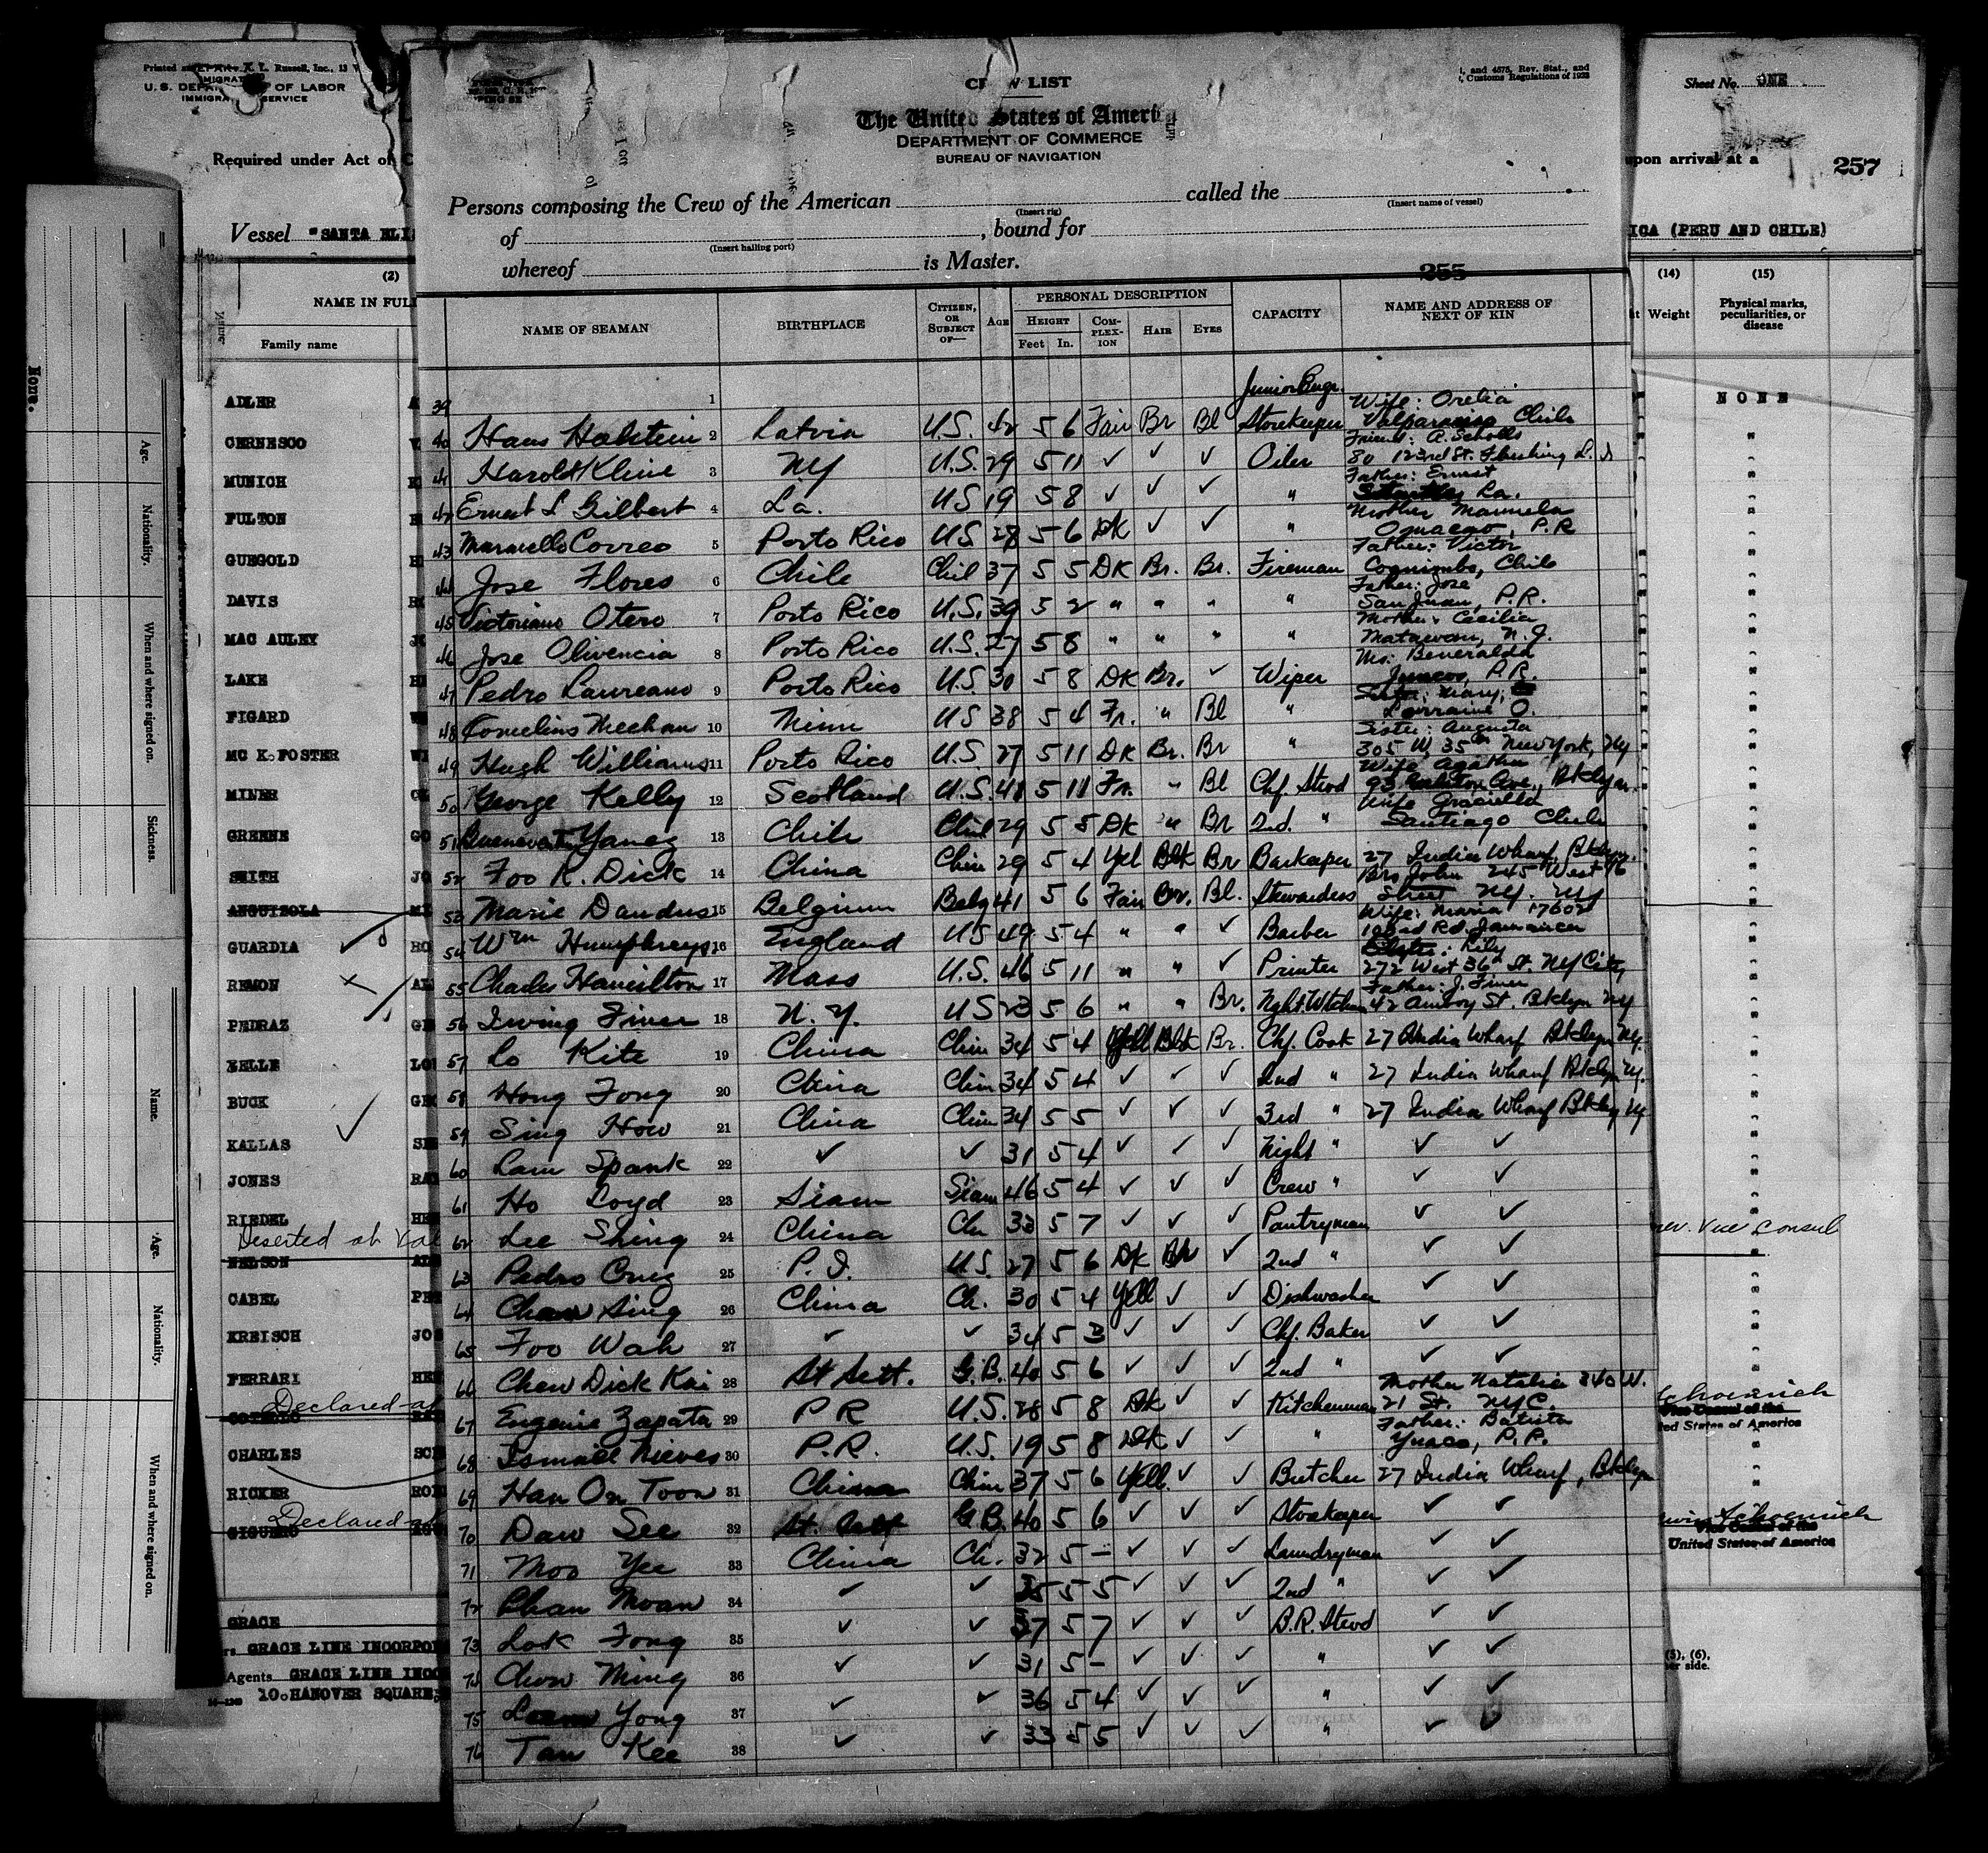 Sheet No. ONE
257
U. S. DEPA OF LABOR
IMMIGRA SERVICE
Required under Act of C
upon arrival at a
Vessel "SANTA ELI
ICA (PERU AND CHILE)
(2)
NAME IN FULL
Family name
(14)
Weight
(15)
Physical marks, peculiarities, or disease
NONE
ADLER
CERNESCO
MUNICH
FULTON
GUEGOLD
DAVIS
MAC AULEY
LAKE
FIGARD
MC K. FOSTER
MINER
GREENE
SMITH
ANGUIZOLA
GUARDIA
REMON
PEDRAZ
NELLE
BUCK
KALLAS
JONES
RIEDEL
Deserted at Val
NELSON
CABEL
KREISCH
FERRARI
Declared at
CHARLES
RICKER
Declared at
GRACE
GRACE LINE INCORPO
Agents GRACE LINE INCO
10. HANOVER SQUARE,
Vice Consul
Vice Consul of the
ted States of America
Schoenrich
Vice Consul of the
United States of America
(5), (6),
er side.
None.
Age.
Nationality.
When and where signed on.
Sickness.
Name.
Age.
Nationality.
When and where signed on.
CREW LIST
, and 4575, Rev. Stat., and
, Customs Regulations of 1923
The United States of Ameri
DEPARTMENT OF COMMERCE
BUREAU OF NAVIGATION
Persons composing the Crew of the American called the
(Insert rig) (Insert name of vessel)
of , bound for
(Insert hailing port)
whereof is Master.
255
NAME OF SEAMAN BIRTHPLACE CITIZEN, OR SUBJECT OF— AGE PERSONAL DESCRIPTION CAPACITY NAME AND ADDRESS OF NEXT OF KIN
HEIGHT Feet In. COMPLEXION HAIR EYES
39 1
Junior Engr. Wife: Orelia
40 Hans Holstein 2 Latvia U.S. 42 5 6 Fair Br Bl Storekeeper Valparaiso Chile
Friend: A. Scholls
41 Harold Kline 3 NY U.S. 29 5 11 ✓ ✓ ✓ Oiler 80 123rd St. Flushing L. I
Father: Ernest
42 Ernest L Gilbert 4 La. US 19 5 8 ✓ ✓ ✓ " La.
Mother Manuela
43 Correo 5 Porto Rico US 28 5 6 Dk ✓ ✓ " P.R
Father: Victor
44 Jose Flores 6 Chile Chil 37 5 5 DK Br. Br. Fireman Coquimbo, Chile
Father: Jose
45 Victoriano Otero 7 Porto Rico U.S. 39 5 2 " " " " San Juan, P.R.
Mother Cecilia
46 Jose Olivencia 8 Porto Rico U.S. 27 5 8 " " " " Matawan, N.J.
47 Pedro Laureano 9 Porto Rico U.S. 30 5 8 DK Br. ✓ Wiper Juncos, P.R.
Sister: Mary,
48 Cornelius Meehan 10 Minn US 38 5 4 Fr. " Bl " Lorraine O.
Sister: Augusta
49 Hugh Williams 11 Porto Rico U.S. 27 5 11 DK Br. Br " 305 W 35th New York, Ny
Wife Agatha
50 George Kelly 12 Scotland U.S. 41 5 11 Fr. " Bl Chf. Stwd Ave., Bklyn.
Wife Graciella
51 Yanez 13 Chile Chil 29 5 5 DK " Br 2nd. " Santiago Chile
52 Foo K. Dick 14 China Chin 29 5 4 Yel Blk Br Barkeeper 27 India Wharf, Bklyn.
Bro John 245 West 76
53 Marie Dandus 15 Belgium Belg 41 5 6 Fair Br. Bl. Stewardess Street NY. NY
Wife: Maria 17602
54 Wm Humphreys 16 England US 49 5 4 " " ✓ Barber Rd. Jamaica
Lily
55 Charles Hamilton 17 Mass U.S. 46 5 11 " " ✓ Printer 272 West 36th St. NY City
Father: J. Finer
56 Irving Finer 18 N.Y. US 23 5 6 " " Br. Nght Wtchm 42 Amboy St. Bklyn NY
57 Lo Kite 19 China Chin 34 5 4 Yell Blk Br. Chf. Cook 27 India Wharf Bklyn Ny.
58 Hong Fong 20 China Chin 34 5 4 ✓ ✓ ✓ 2nd " 27 India Wharf Bklyn Ny.
59 Sing How 21 China Chin 34 5 5 ✓ ✓ ✓ 3rd " 27 India Wharf Bklyn Ny.
60 Lam Spank 22 ✓ ✓ 31 5 4 ✓ ✓ ✓ Night " ✓ ✓
61 Ho Loyd 23 Siam Siam 46 5 4 ✓ ✓ ✓ Crew " ✓ ✓
62 Lee Shing 24 China Ch 33 5 7 ✓ ✓ ✓ Pantryman ✓ ✓
63 Pedro Cruz 25 P.I. U.S. 27 5 6 Dk Blk ✓ 2nd " ✓ ✓
64 Chan Sing 26 China Ch. 30 5 4 Yell ✓ ✓ Dishwasher ✓ ✓
65 Foo Wah 27 ✓ ✓ 34 5 3 ✓ ✓ ✓ Chf. Baker ✓ ✓
66 Chew Dick Kai 28 St Sett. G.B. 40 5 6 ✓ ✓ ✓ 2nd " ✓ ✓
Mother Natalia 340 W.
67 Eugenie Zapata 29 P R U.S. 28 5 8 Dk ✓ ✓ Kitchenman 21 St. NYC.
Father: Batista
68 Ismael Nieves 30 P.R. U.S. 19 5 8 Dk ✓ ✓ " Yauco, P.R.
69 Han On Toon 31 China Chin 37 5 6 Yell. ✓ ✓ Butcher 27 India Wharf, Bklyn
70 Daw See 32 St. Sett G.B. 40 5 6 ✓ ✓ ✓ Storekeeper ✓ ✓
71 Moo Yee 33 China Ch. 32 5 – ✓ ✓ ✓ Laundryman ✓ ✓
72 Chan Moan 34 ✓ ✓ 35 5 5 ✓ ✓ ✓ 2nd " ✓ ✓
73 Lok Fong 35 ✓ ✓ 37 5 7 ✓ ✓ ✓ B.R. Stwd ✓ ✓
74 Chow Ming 36 ✓ ✓ 31 5 – ✓ ✓ ✓ " ✓ ✓
75 Yong 37 ✓ ✓ 36 5 4 ✓ ✓ ✓ " ✓ ✓
76 Tan Kee 38 ✓ ✓ 33 5 5 ✓ ✓ ✓ " ✓ ✓